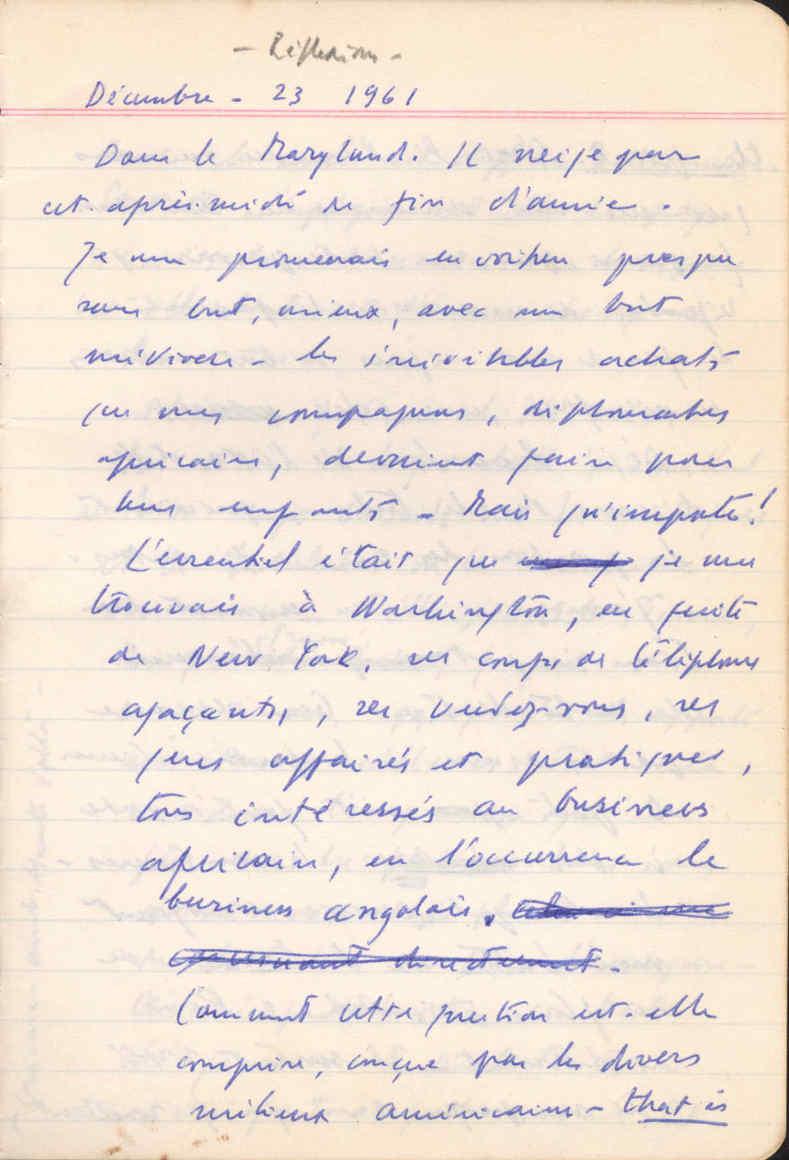 - Réflexions -
Décembre - 23 1961
Dans le Maryland. Il neige par
cet après-midi de fin d'année.
Je me promenais en voiture presque
sans but, mieux, avec un but
les inévitables achats
que mes compagnons, diplomates
africains, devaient faire pour
leurs enfants - Mais qu'importe!
L'essentiel était que je me
trouvais à Washington, en fuite
de New York, ses coups de téléphones
agaçants, ses rendez-vous, ses
gens affairés et pratiques,
tous intéressés au business
africain, en l'occurrence le
business angolais.
directement.
Comment cette question est-elle
comprise, conçue par les divers
milieux américains - that is